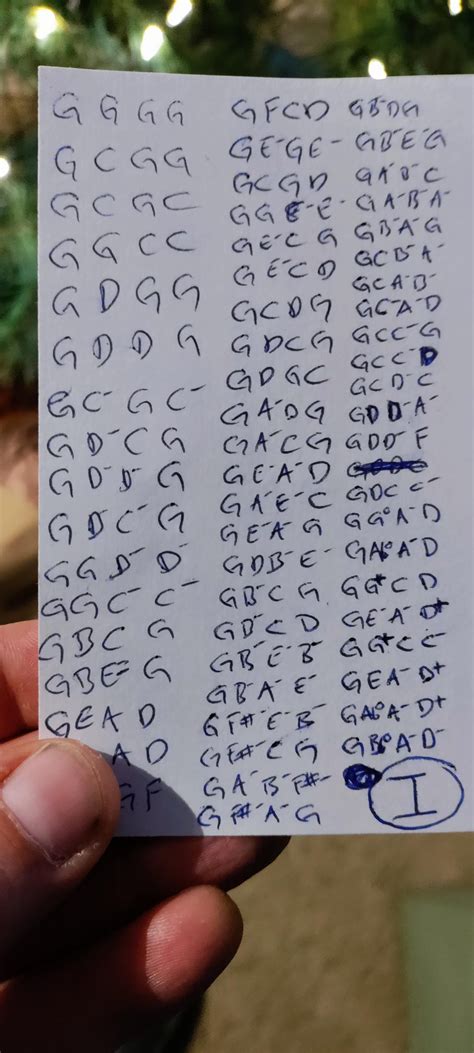 G G G G
G C G G
G C G C
G G C C
G D G G
G D D G
G C⁻ G C⁻
G D⁻ C G
G D⁻ D⁻ G
G D C⁻ G
G G D⁻ D⁻
G G C⁻ C⁻
G B C G
G B E⁻ G
G E A D
A D
G F
G F C D
G E⁻ G E⁻
G C G D
G G E⁻ E⁻
G E⁻ C G
G E⁻ C D
G C D G
G D C G
G D G C
G A⁻ D G
G A⁻ C G
G E A⁻ D
G A⁻ E⁻ C
G E A⁻ G
G D B⁻ E⁻
G B⁻ C G
G B⁻ C D
G B⁻ E⁻ B⁻
G B⁻ A⁻ E⁻
G F#⁻ E⁻ B⁻
G F#⁻ C G
G A⁻ B⁻ F#⁻
G F#⁻ A⁻ G
G B⁻ D G
G B⁻ E⁻ G
G A⁻ D⁻ C
G A⁻ B⁻ A⁻
G B⁻ A⁻ G
G C B⁻ A⁻
G C A⁻ B⁻
G C⁻ A⁻ D
G C C⁻ G
G C C⁻ D
G C D⁻ C
G D D⁻ A⁻
G D D⁻ F
G D C C⁻
G G° A⁻ D
G A° A⁻ D
G G⁺ C D
G E A⁻ D⁺
G G⁺ C C⁻
G E A⁻ D⁺
G A° A⁻ D⁺
G B° A⁻ D⁻
I